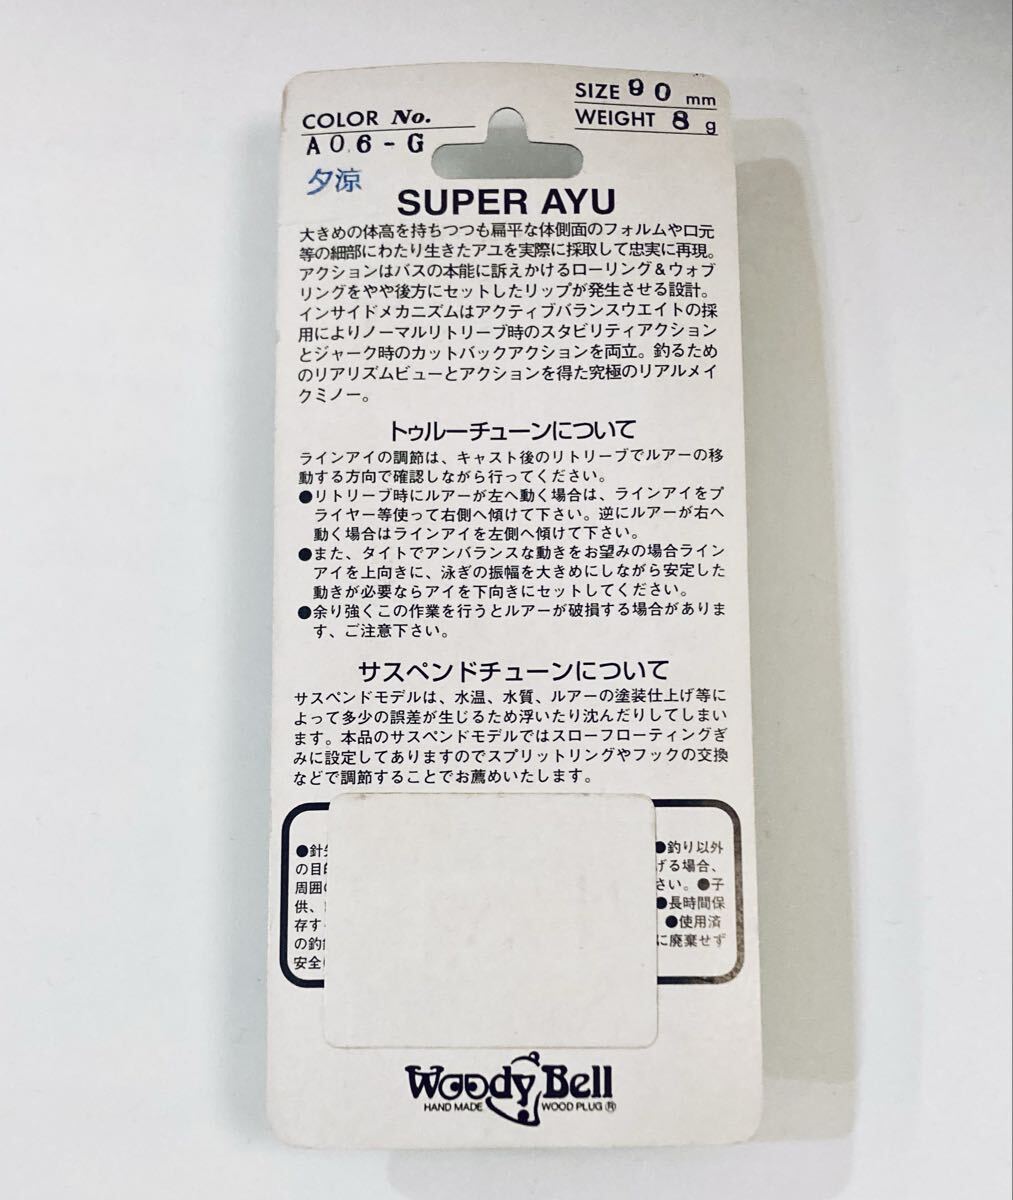 COLOR No.
A06-G
夕涼
SIZE 90 mm
WEIGHT 8 g
SUPER AYU
大きめの体高を持ちつつも扁平な体側面のフォルムや口元
等の細部にわたり生きたアユを実際に採取して忠実に再現。
アクションはバスの本能に訴えかけるローリング&ウォブ
リングをやや後方にセットしたリップが発生させる設計。
インサイドメカニズムはアクティブバランスウエイトの採
用によりノーマルリトリーブ時のスタビリティアクション
とジャーク時のカットバックアクションを両立。釣るため
のリアリズムビューとアクションを得た究極のリアルメイ
クミノー。
トゥルーチューンについて
ラインアイの調節は、キャスト後のリトリーブでルアーの移
動する方向で確認しながら行ってください。
●リトリーブ時にルアーが左へ動く場合は、ラインアイをプ
ライヤー等使って右側へ傾けて下さい。逆にルアーが右へ
動く場合はラインアイを左側へ傾けて下さい。
●また、タイトでアンバランスな動きをお望みの場合ライン
アイを上向きに、泳ぎの振幅を大きめにしながら安定した
動きが必要ならアイを下向きにセットしてください。
●余り強くこの作業を行うとルアーが破損する場合がありま
す、ご注意下さい。
サスペンドチューンについて
サスペンドモデルは、水温、水質、ルアーの塗装仕上げ等に
よって多少の誤差が生じるため浮いたり沈んだりしてしまい
ます。本品のサスペンドモデルではスローフローティングぎ
みに設定してありますのでスプリットリングやフックの交換
などで調節することでお薦めいたします。
●針 ●釣り以外
の目 げる場合、
周囲 さい。●子
供、 ●長時間保
存す ●使用済
の釣 に廃棄せず
安全
Woody Bell
HAND MADE WOOD PLUG ®